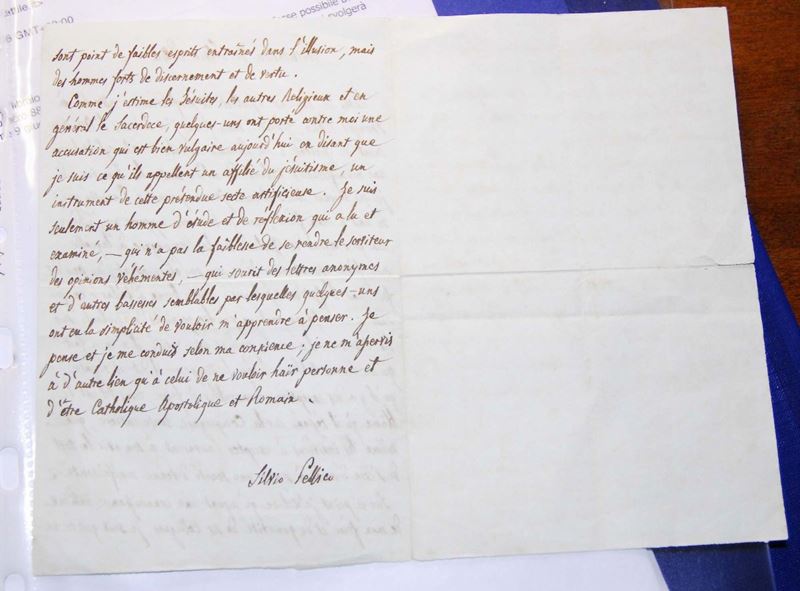 sse possibile
volgerà
GMT+02:00
sont point de faibles esprits entraînés dans l'illusion, mais
des hommes forts de discernement et de vertu.
Comme j'estime les Jésuites, les autres Religieux et en
général le Sacerdoce, quelques-uns ont porté contre moi une
accusation qui est bien vulgaire aujourd'hui en disant que
je suis ce qu'ils appellent un affilié du jésuitisme, un
instrument de cette prétendue secte artificieuse. Je suis
seulement un homme d'étude et de réflexion qui a lu et
examiné, — qui n'a pas la faiblesse de se rendre le serviteur
des opinions véhémentes, — qui sourit des lettres anonymes
et d'autres bassesses semblables par lesquelles quelques-uns
ont eu la simplicité de vouloir m'apprendre à penser. Je
pense et je me conduis selon ma conscience; je ne m'asservis
à d'autre lien qu'à celui de ne vouloir haïr personne et
d'être Catholique Apostolique et Romain
Silvio Pellico